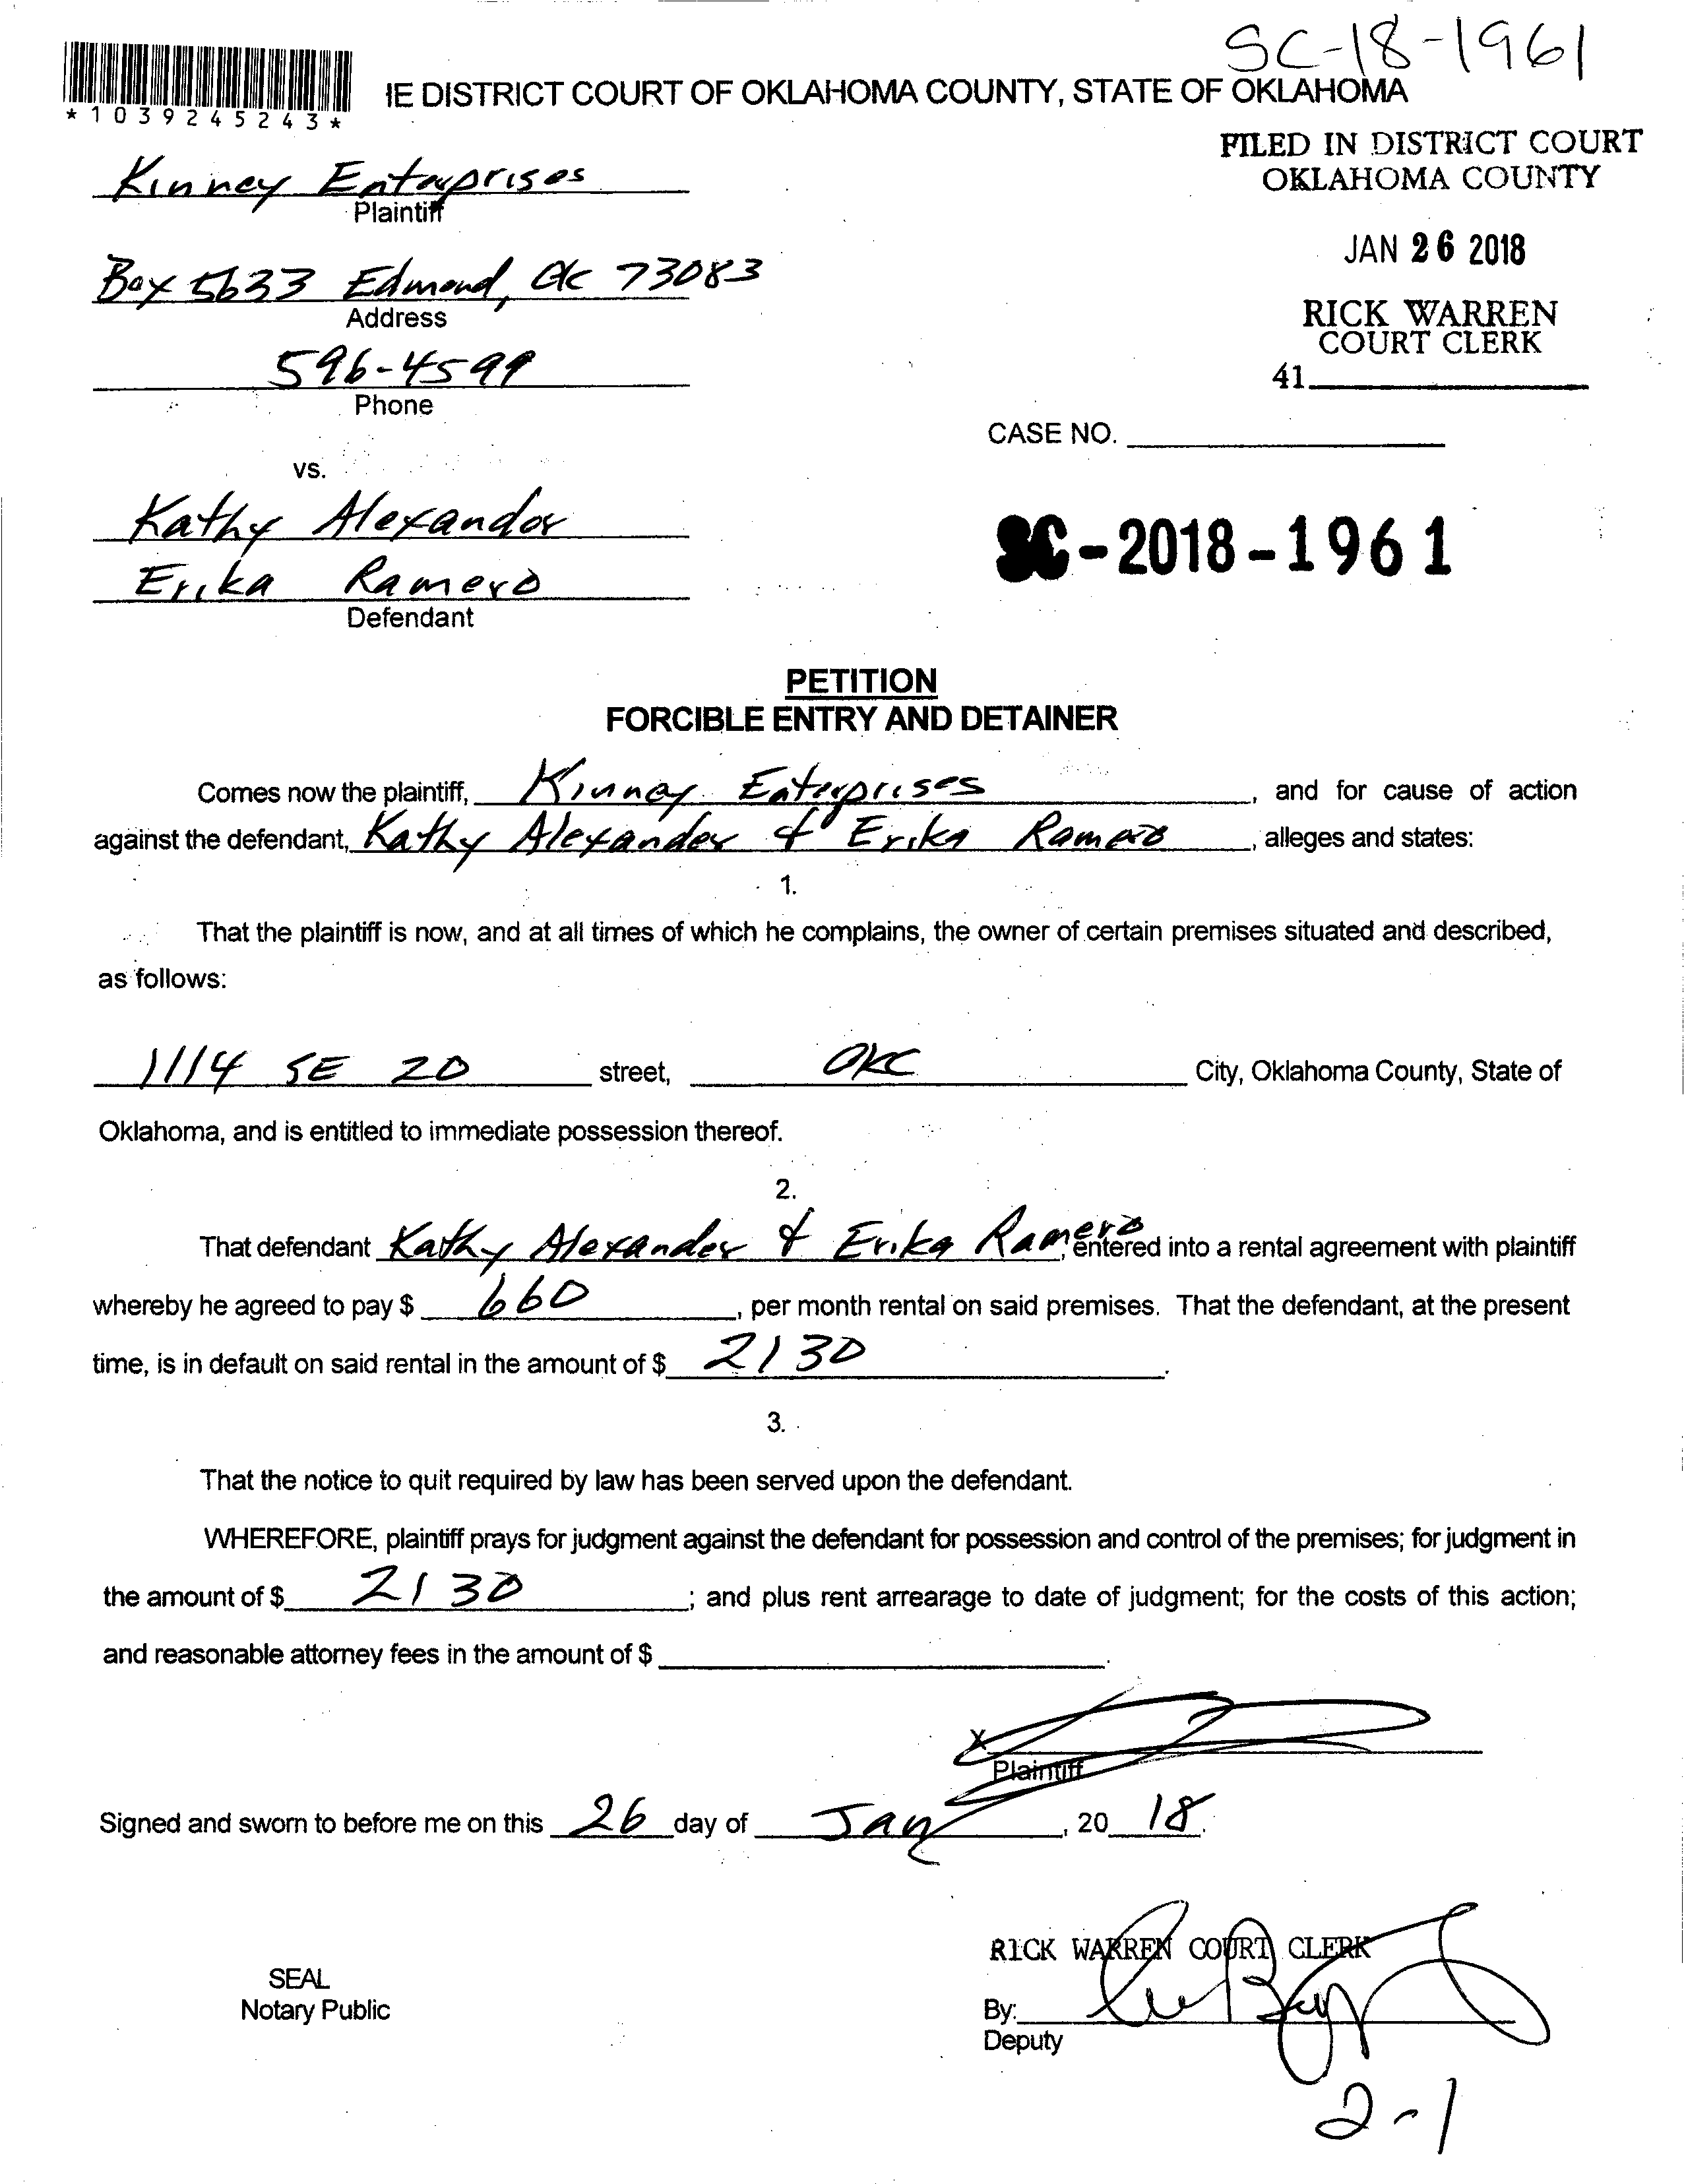 SC-18-1961
*1039245243*
IE DISTRICT COURT OF OKLAHOMA COUNTY, STATE OF OKLAHOMA
FILED IN DISTRICT COURT
OKLAHOMA COUNTY
Kinney Enterprises
Plaintiff
JAN 26 2018
Box 5633 Edmond, Ok 73083
Address
RICK WARREN
COURT CLERK
596-4599
41
Phone
CASE NO.
vs.
Kathy Alexander
SC-2018-1961
Erika Ramero
Defendant
PETITION
FORCIBLE ENTRY AND DETAINER
Comes now the plaintiff, Kinney Enterprises, and for cause of action
against the defendant, Kathy Alexander & Erika Ramero, alleges and states:
1.
That the plaintiff is now, and at all times of which he complains, the owner of certain premises situated and described,
as follows:
1114 SE 20 street, OKC City, Oklahoma County, State of
Oklahoma, and is entitled to immediate possession thereof.
2.
That defendant Kathy Alexander & Erika Ramero, entered into a rental agreement with plaintiff
whereby he agreed to pay $ 660, per month rental on said premises. That the defendant, at the present
time, is in default on said rental in the amount of $ 2130.
3.
That the notice to quit required by law has been served upon the defendant.
WHEREFORE, plaintiff prays for judgment against the defendant for possession and control of the premises; for judgment in
the amount of $ 2130; and plus rent arrearage to date of judgment; for the costs of this action;
and reasonable attorney fees in the amount of $ .
X
Plaintiff
Signed and sworn to before me on this 26 day of Jan, 20 18.
RICK WARREN COURT CLERK
SEAL
Notary Public
By:
Deputy
2-1